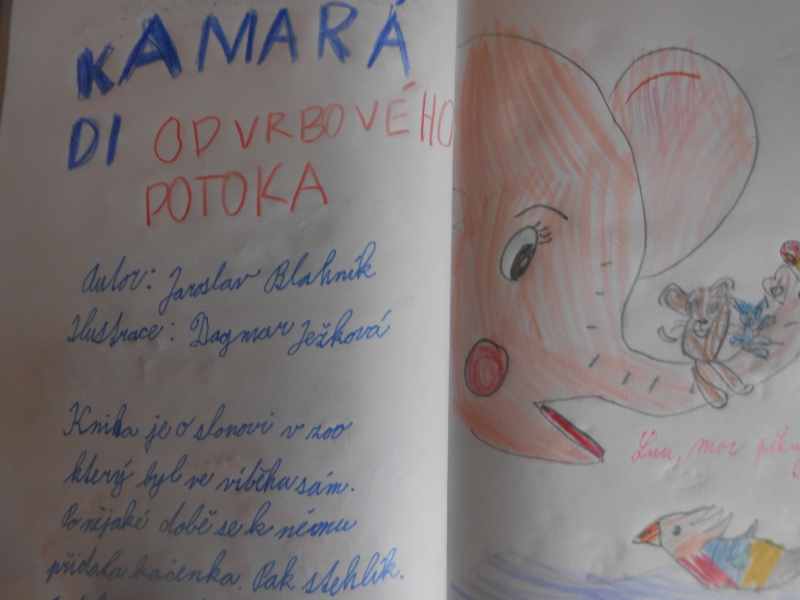 KAMARÁ
DI OD VRBOVÉHO
POTOKA
Autor: Jaroslav Blahník
Ilustrace: Dagmar Ježková
Kniha je o slonovi v zoo
který byl ve víběhu sám.
Po nějaké době se k němu
přidala kačenka. Pak stehlík.
moc